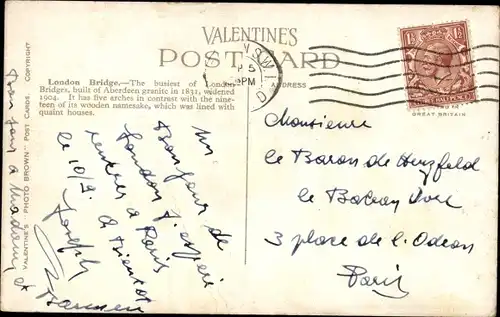 VALENTINES
POST CARD
London Bridge.—The busiest of London
Bridges, built of Aberdeen granite in 1831, widened
1904. It has five arches in contrast with the nine-
teen of its wooden namesake, which was lined with
quaint houses.
ADDRESS
GREAT BRITAIN
VALENTINE'S "PHOTO BROWN" POST CARDS. COPYRIGHT
Un
Bonjour de
London J'espère
rentrer à Paris
le 10/9. à Bientôt
Joseph
Monsieur
le Baron de Herzfeld
le
3 place de l'Odeon
Paris